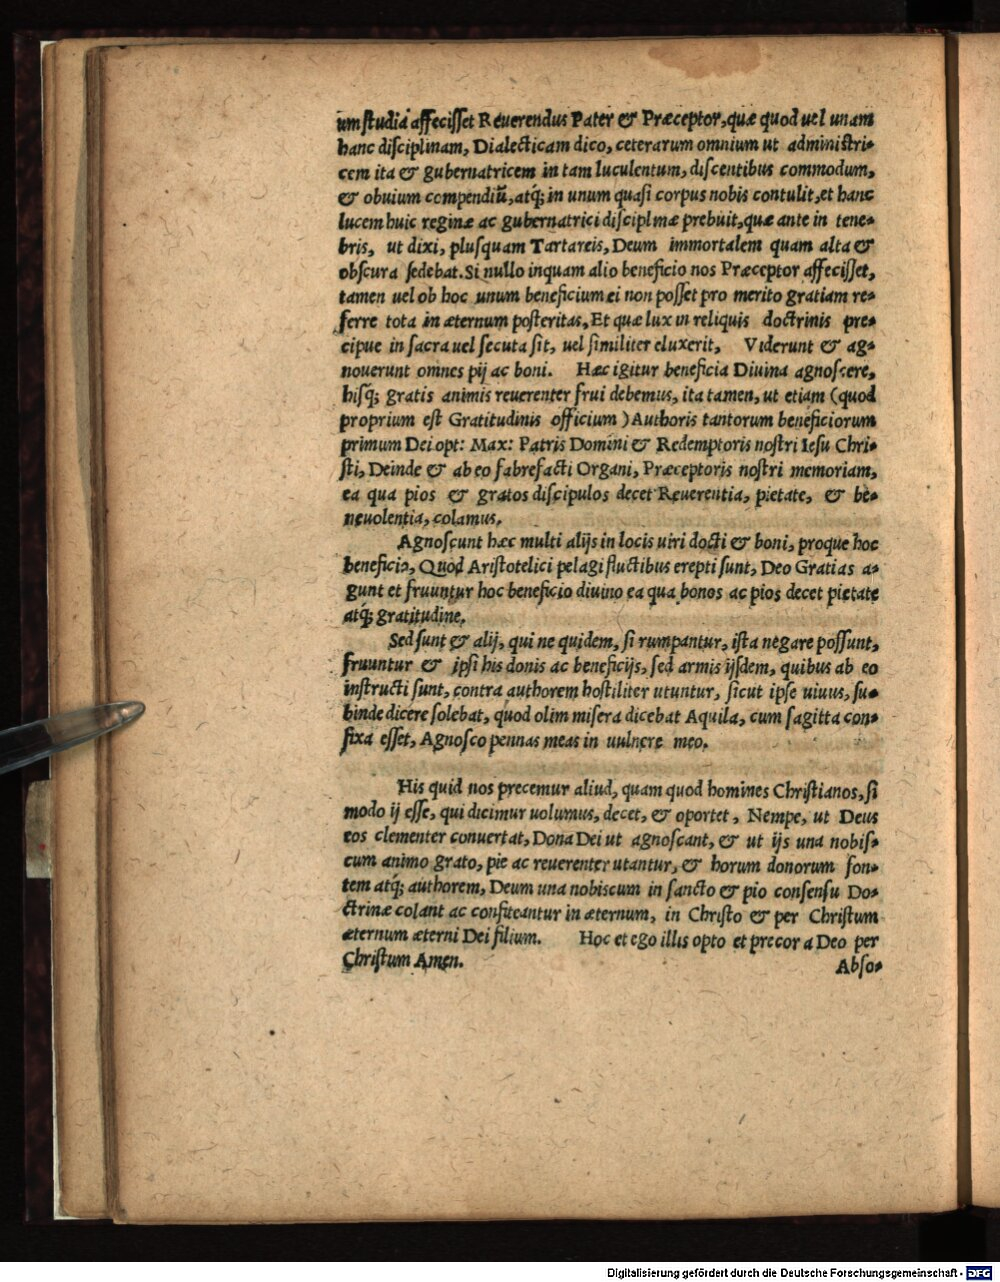 um studia affecisset Reuerendus Pater & Præceptor, quæ quod uel unam
hanc disciplinam, Dialecticam dico, ceterarum omnium ut administri-
cem ita & gubernatricem in tam luculentum, discentibus commodum,
& obuium compendiũ, atq́; in unum quasi corpus nobis contulit, et hanc
lucem huic reginæ ac gubernatrici disciplinæ prebuit, quæ ante in tene-
bris, ut dixi, plusquam Tartareis, Deum immortalem quam alta &
obscura sedebat. Si nullo inquam alio beneficio nos Præceptor affecisset,
tamen uel ob hoc unum beneficium ei non posset pro merito gratiam re-
ferre tota in æternum posteritas, Et quæ lux in reliquis doctrinis pre-
cipue in sacra uel secuta sit, uel similiter eluxerit, Viderunt & ag-
nouerunt omnes pij ac boni. Hæc igitur beneficia Diuina agnoscere,
hisq́; gratis animis reuerenter frui debemus, ita tamen, ut etiam (quod
proprium est Gratitudinis officium) Authoris tantorum beneficiorum
primum Dei opt: Max: Patris Domini & Redemptoris nostri Iesu Chri-
sti, Deinde & ab eo fabrefacti Organi, Præceptoris nostri memoriam,
ea qua pios & gratos discipulos decet Reuerentia, pietate, & be-
neuolentia, colamus.
Agnoscunt hæc multi alijs in locis uiri docti & boni, proque hoc
beneficio, Quod Aristotelici pelagi fluctibus erepti sunt, Deo Gratias a-
gunt et fruuntur hoc beneficio diuino ea qua bonos ac pios decet pietate
atq́; gratitudine.
Sed sunt & alij, qui ne quidem, si rumpantur, ista negare possunt,
fruuntur & ipsi his donis ac beneficijs, sed armis ijsdem, quibus ab eo
instructi sunt, contra authorem hostiliter utuntur, sicut ipse uiuus, su-
binde dicere solebat, quod olim misera dicebat Aquila, cum sagitta con-
fixa esset, Agnosco pennas meas in uulnere meo.
His quid nos precemur aliud, quam quod homines Christianos, si
modo ij esse, qui dicimur uolumus, decet, & oportet, Nempe, ut Deus
eos clementer conuertat, Dona Dei ut agnoscant, & ut ijs una nobis-
cum animo grato, pie ac reuerenter utantur, & horum donorum fon-
tem atq́; authorem, Deum una nobiscum in sancto & pio consensu Do-
ctrinæ colant ac confiteantur in æternum, in Christo & per Christum
æternum æterni Dei filium. Hoc et ego illis opto et precor a Deo per
Christum Amen.
Abso-
Digitalisierung gefördert durch die Deutsche Forschungsgemeinschaft - DFG